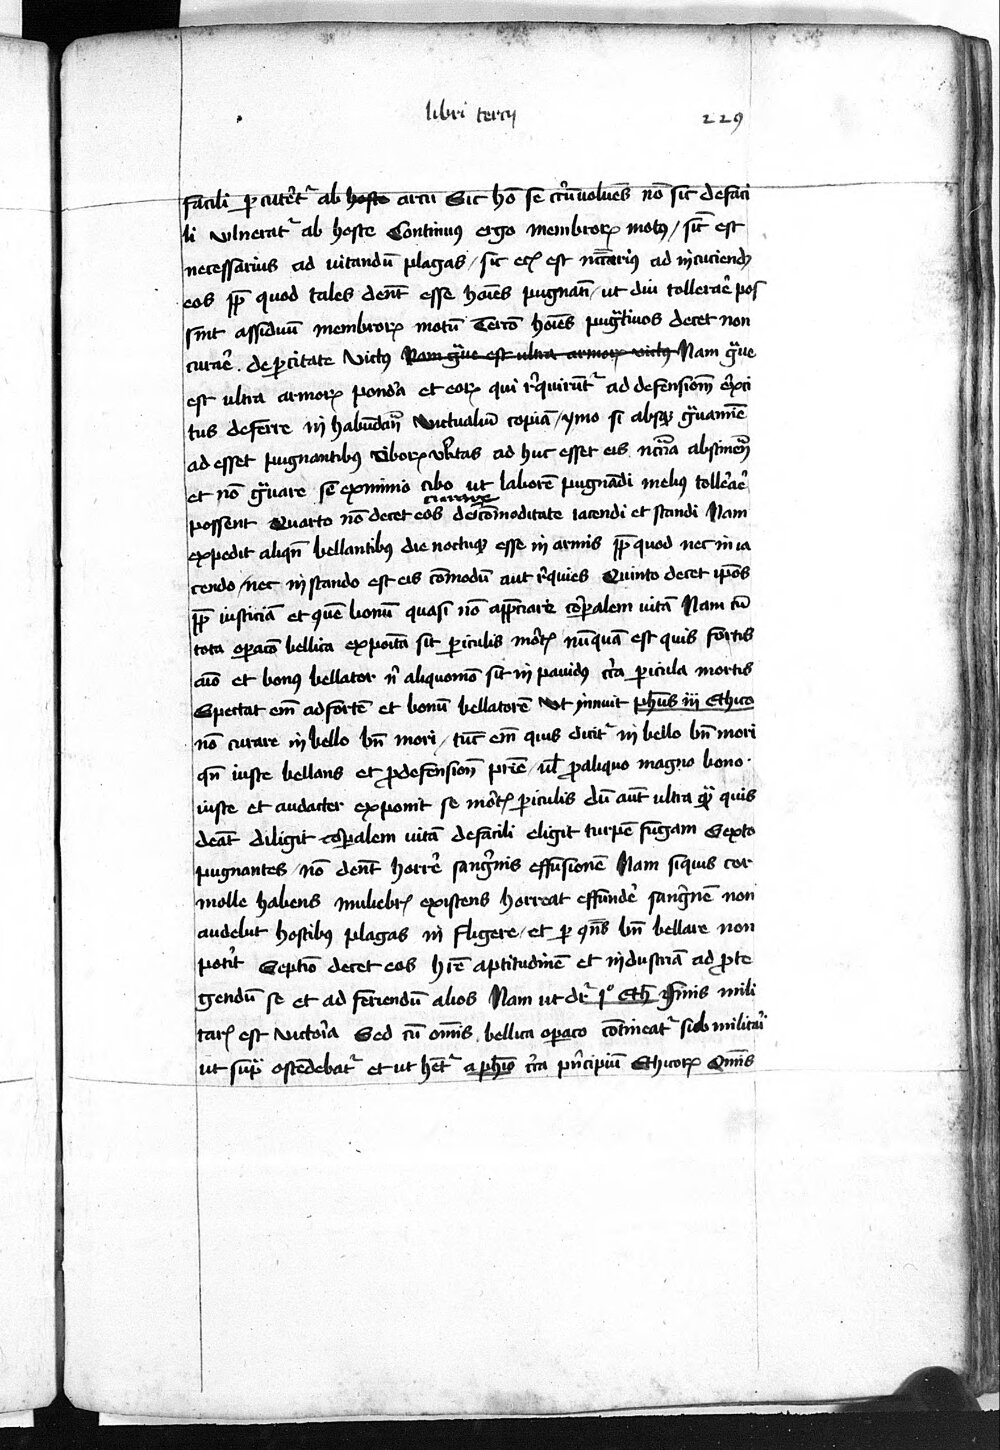 libri tercij
229
facili p̲cutet᷑ ab hoste arcu Sic hō se circūvoluēs nō sic defaci
li vulnerat᷑ ab hoste Continuus ergo membroꝝ motus / sic̄ est
necessarius ad vitandū plagas / sic eciā est nc̄c̄arius ad incuciendū
eos ꝓp̄ quod tales debēt esse hoīes pugnātes / ut diu tollerare pos
sint assiduū membroꝝ motū Tercō hoīes pugnatiuos decet non
curare de parcitate victus Nam gͣue est ultra armoꝝ victus Nam gͣue
est ultra armoꝝ pondera et eoꝝ qui requirūt᷑ ad defensionē exerci
tus deferre in habundātia victualiū copiā / ymo si absqꝫ gͣuamine
ad esset pugnantibus ciboꝝ ubertas ad huc esset eis nc̄c̄aria abstinencia
et nō gͣuare se ex nimio cibo ut laborē pugnādi melius tollerare
possent Quarto nō decet eos curare de cōmoditate iacendi et standi Nam
expedit aliqn̄ bellantibus die noctuqꝫ esse in armis ꝓp̄ quod nec in ia
cendo / nec in stando est eis cōmodū aut requies Quinto decet ip̄os
ꝓp̄ iusticiā et cōmune bonū quasi nō app̄ciare corp̲alem vitā Nam cū
tota op̲acō bellica exposita sit p̲iculis mortis nūquā est quis fortis
aīo et bonus bellator nisi aliquomō sit in pauidus circa p̲icula mortis
Spectat em̄ ad fortē et bonū bellatorē Ut innuit ph̄us iii Ethico
nō curare in bello bn̄ mori / tūc em̄ quis dicit᷑ in bello bn̄ mori
qn̄ iuste bellans et ꝓ defensione patrie / ul̄ ꝓ aliquo magno bono ·
iuste et audacter exponit se mortis p̲iculis dū aūt ultra qͣꝫ quis
debeat diligit corp̲alem vitā defacili eligit turpē fugam Sexto
pugnantes / nō debēt horrere sanguinis effusionē Nam siquis cor
molle habens muliebris existens horreat effundere sanguinē non
audebit hostibus plagas in fligere / et p̲ qn̄s bn̄ bellare non
poterit Septīo decet eos h̄re aptitudinē et industriā ad ꝓte
gendū se et ad feriendū alios Nam ut dr̄ 1º Eth̄ finis mili
taris est victoria Sed cū omīs bellica op̲acō cōtineat᷑ sub militari
ut supͣ ostēdebat᷑ et ut het᷑ a ph̄o circa principiū Ethicoꝝ Omīs